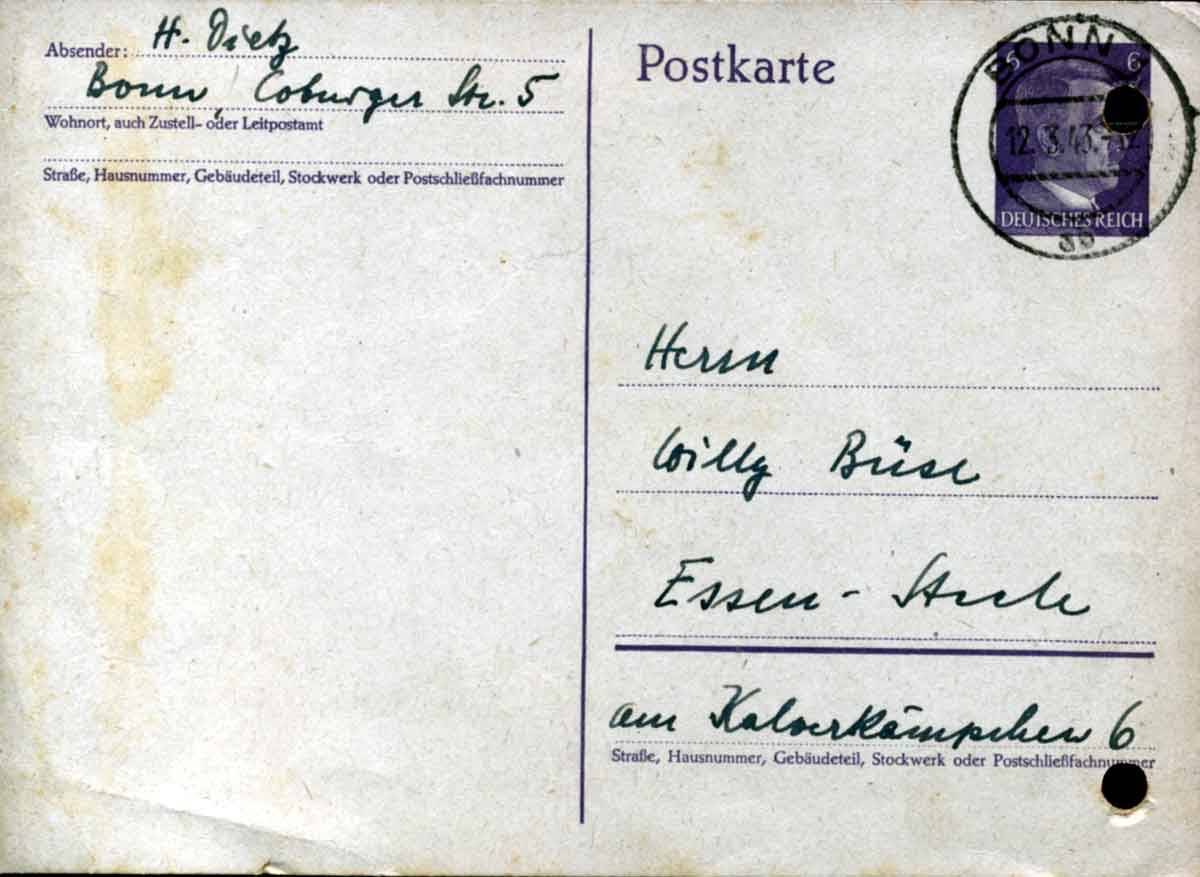 Absender: H. Dietz
Bonn, Coburger Str. 5
Wohnort, auch Zustell- oder Leitpostamt
Straße, Hausnummer, Gebäudeteil, Stockwerk oder Postschließfachnummer
Postkarte
BONN
6
12.3.43.
DEUTSCHES REICH
Herrn
Willy Büse
Essen - Steele
am Kalverkämpchen 6
Straße, Hausnummer, Gebäudeteil, Stockwerk oder Postschließfachnummer